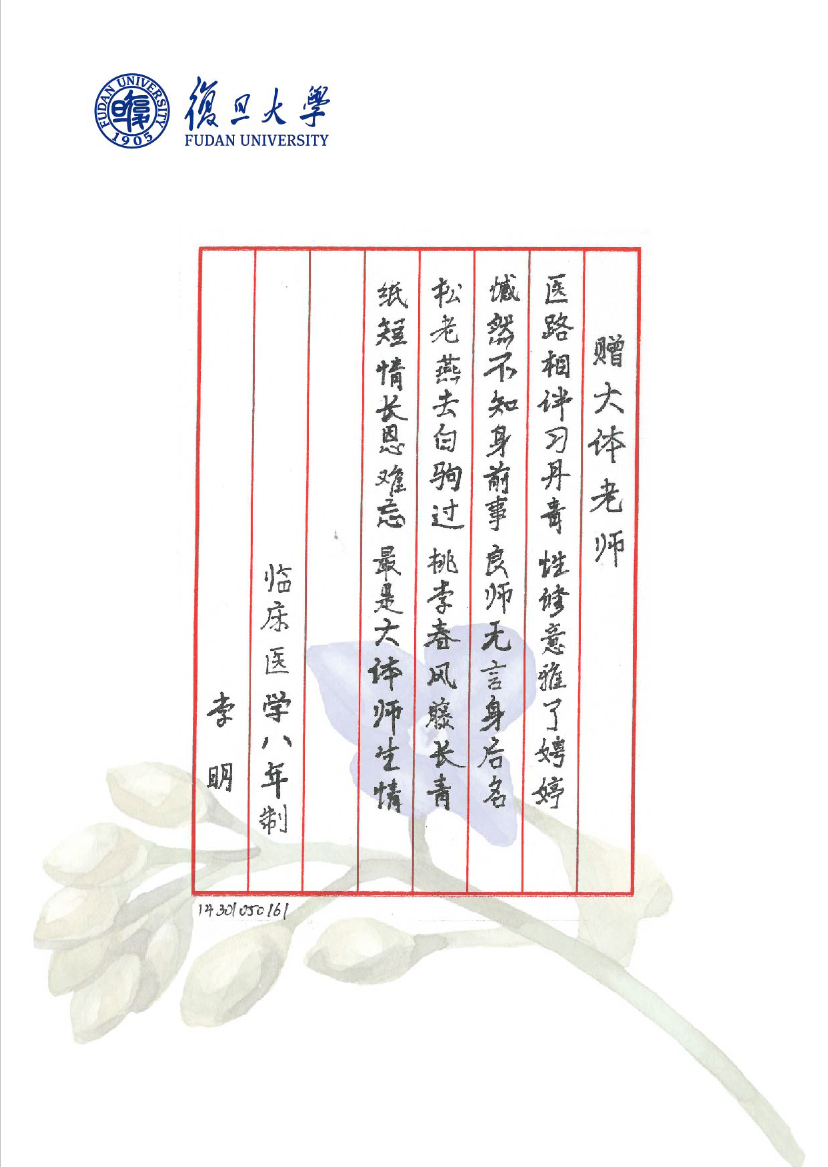 FUDAN UNIVERSITY
1905
復旦大學
FUDAN UNIVERSITY
赠大体老师
医路相伴习丹青 性修意雅了娉婷
憾然不知身前事 良师无言身后名
松老燕去白驹过 桃李春风藤长青
纸短情长恩难忘 最是大体师生情
临床医学八年制
李明
14301050161